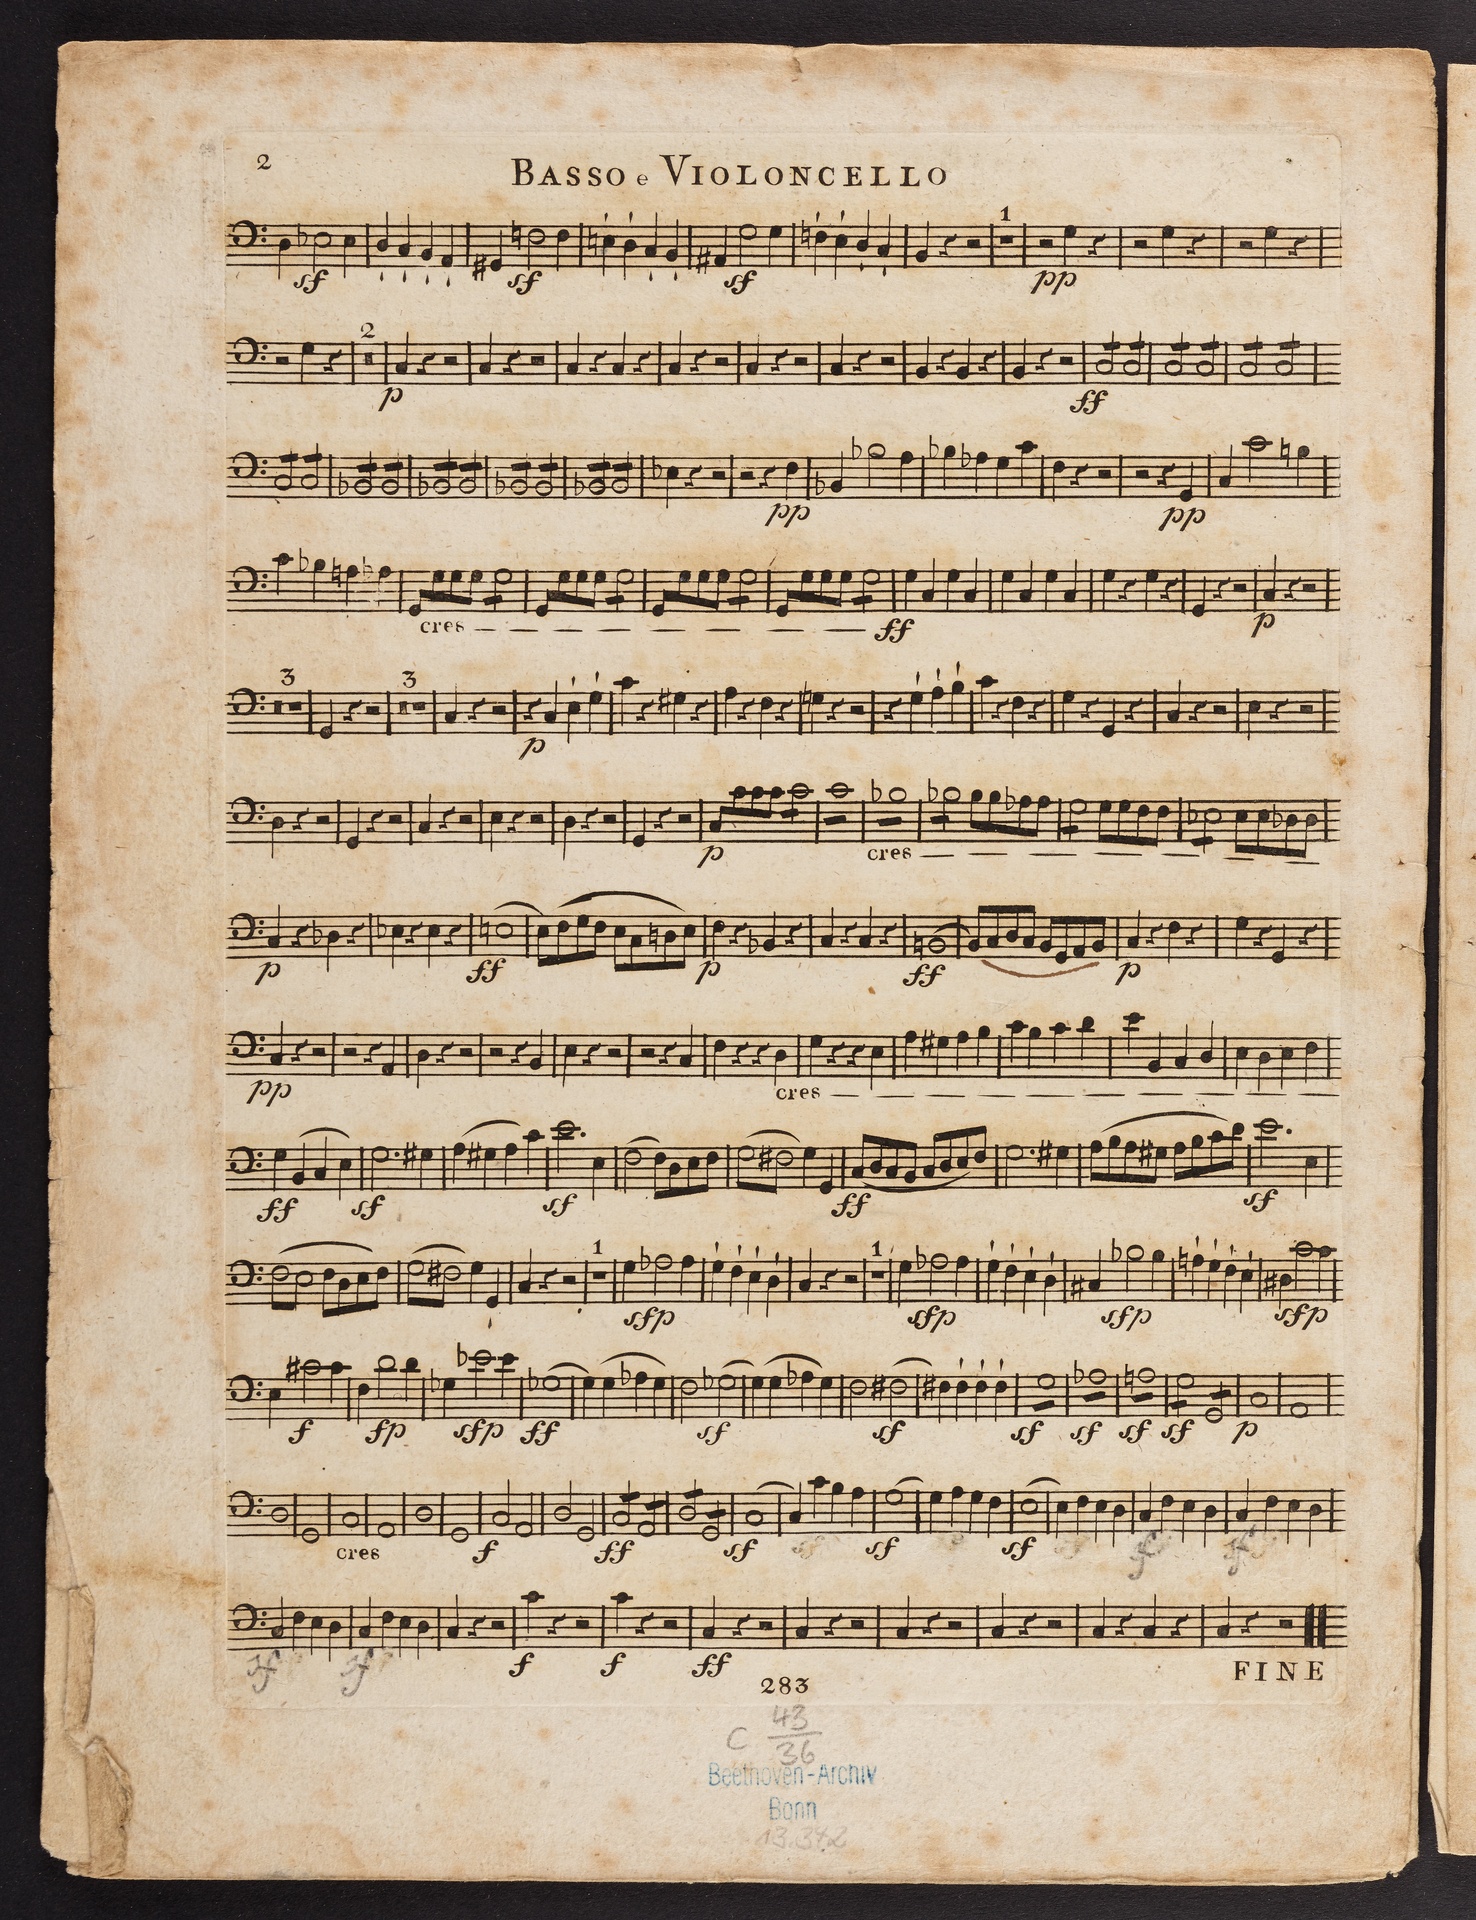 2
BASSO e VIOLONCELLO
1
sf sf sf pp
2
p ff
pp pp
cres ff p
3 3
p
p cres
p ff p ff p
pp cres
ff sf sf ff sf
1 1
sfp sfp sfp sfp
f fp sfp ff sf sf sf sf sf sf p
cres f ff sf sf sf sf sf sf
sf sf f f ff
FINE
283
C 43
36
Beethoven-Archiv
Bonn
13.342